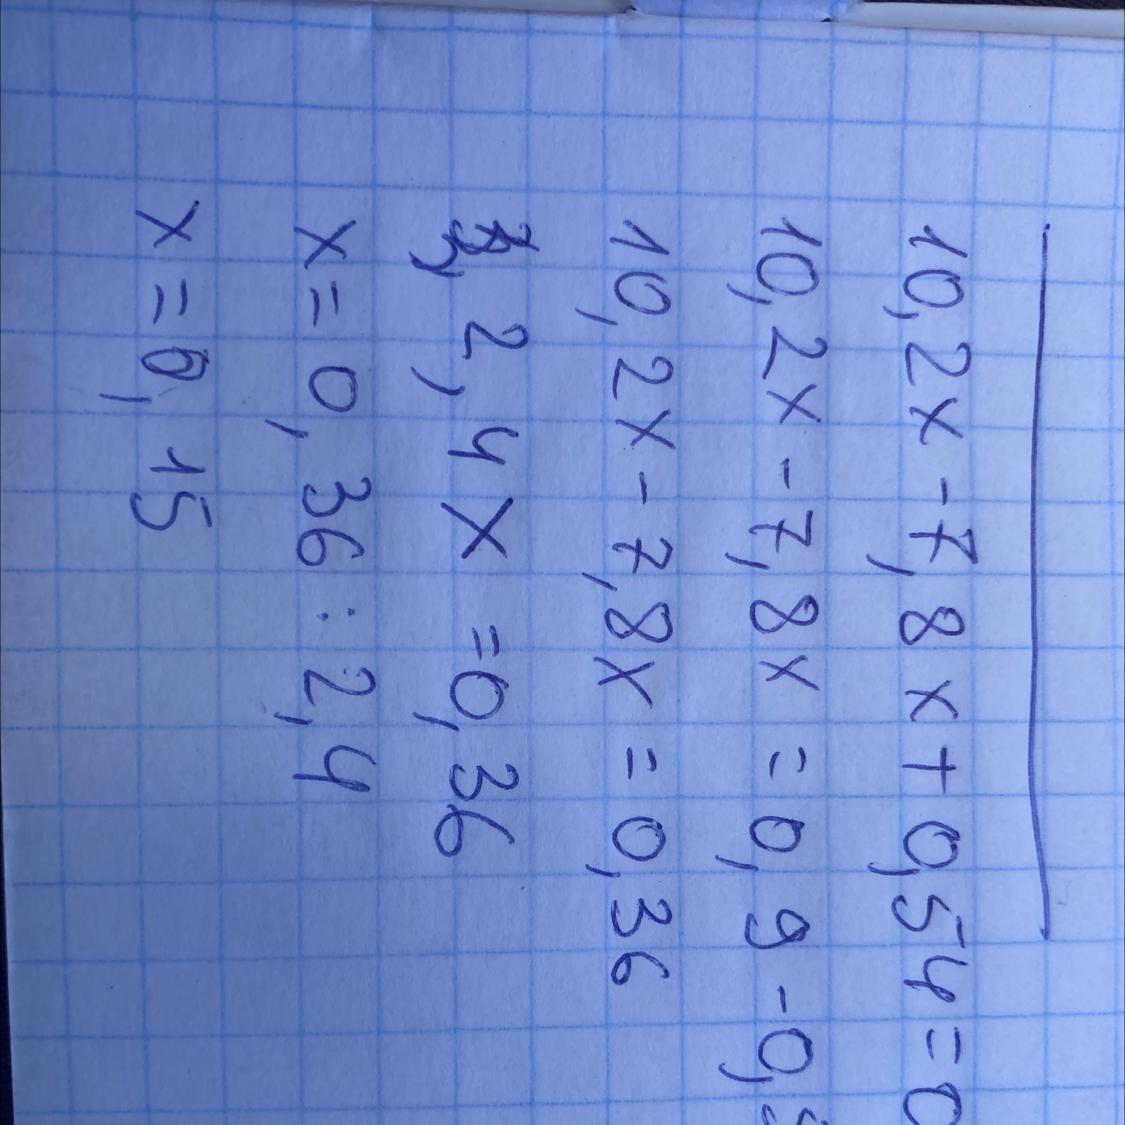 10,2x - 7,8x + 0,54 = 0
10,2x - 7,8x = 0,9 - 0,5
10,2x - 7,8x = 0,36
2,4x = 0,36
x = 0,36 : 2,4
x = 0,15